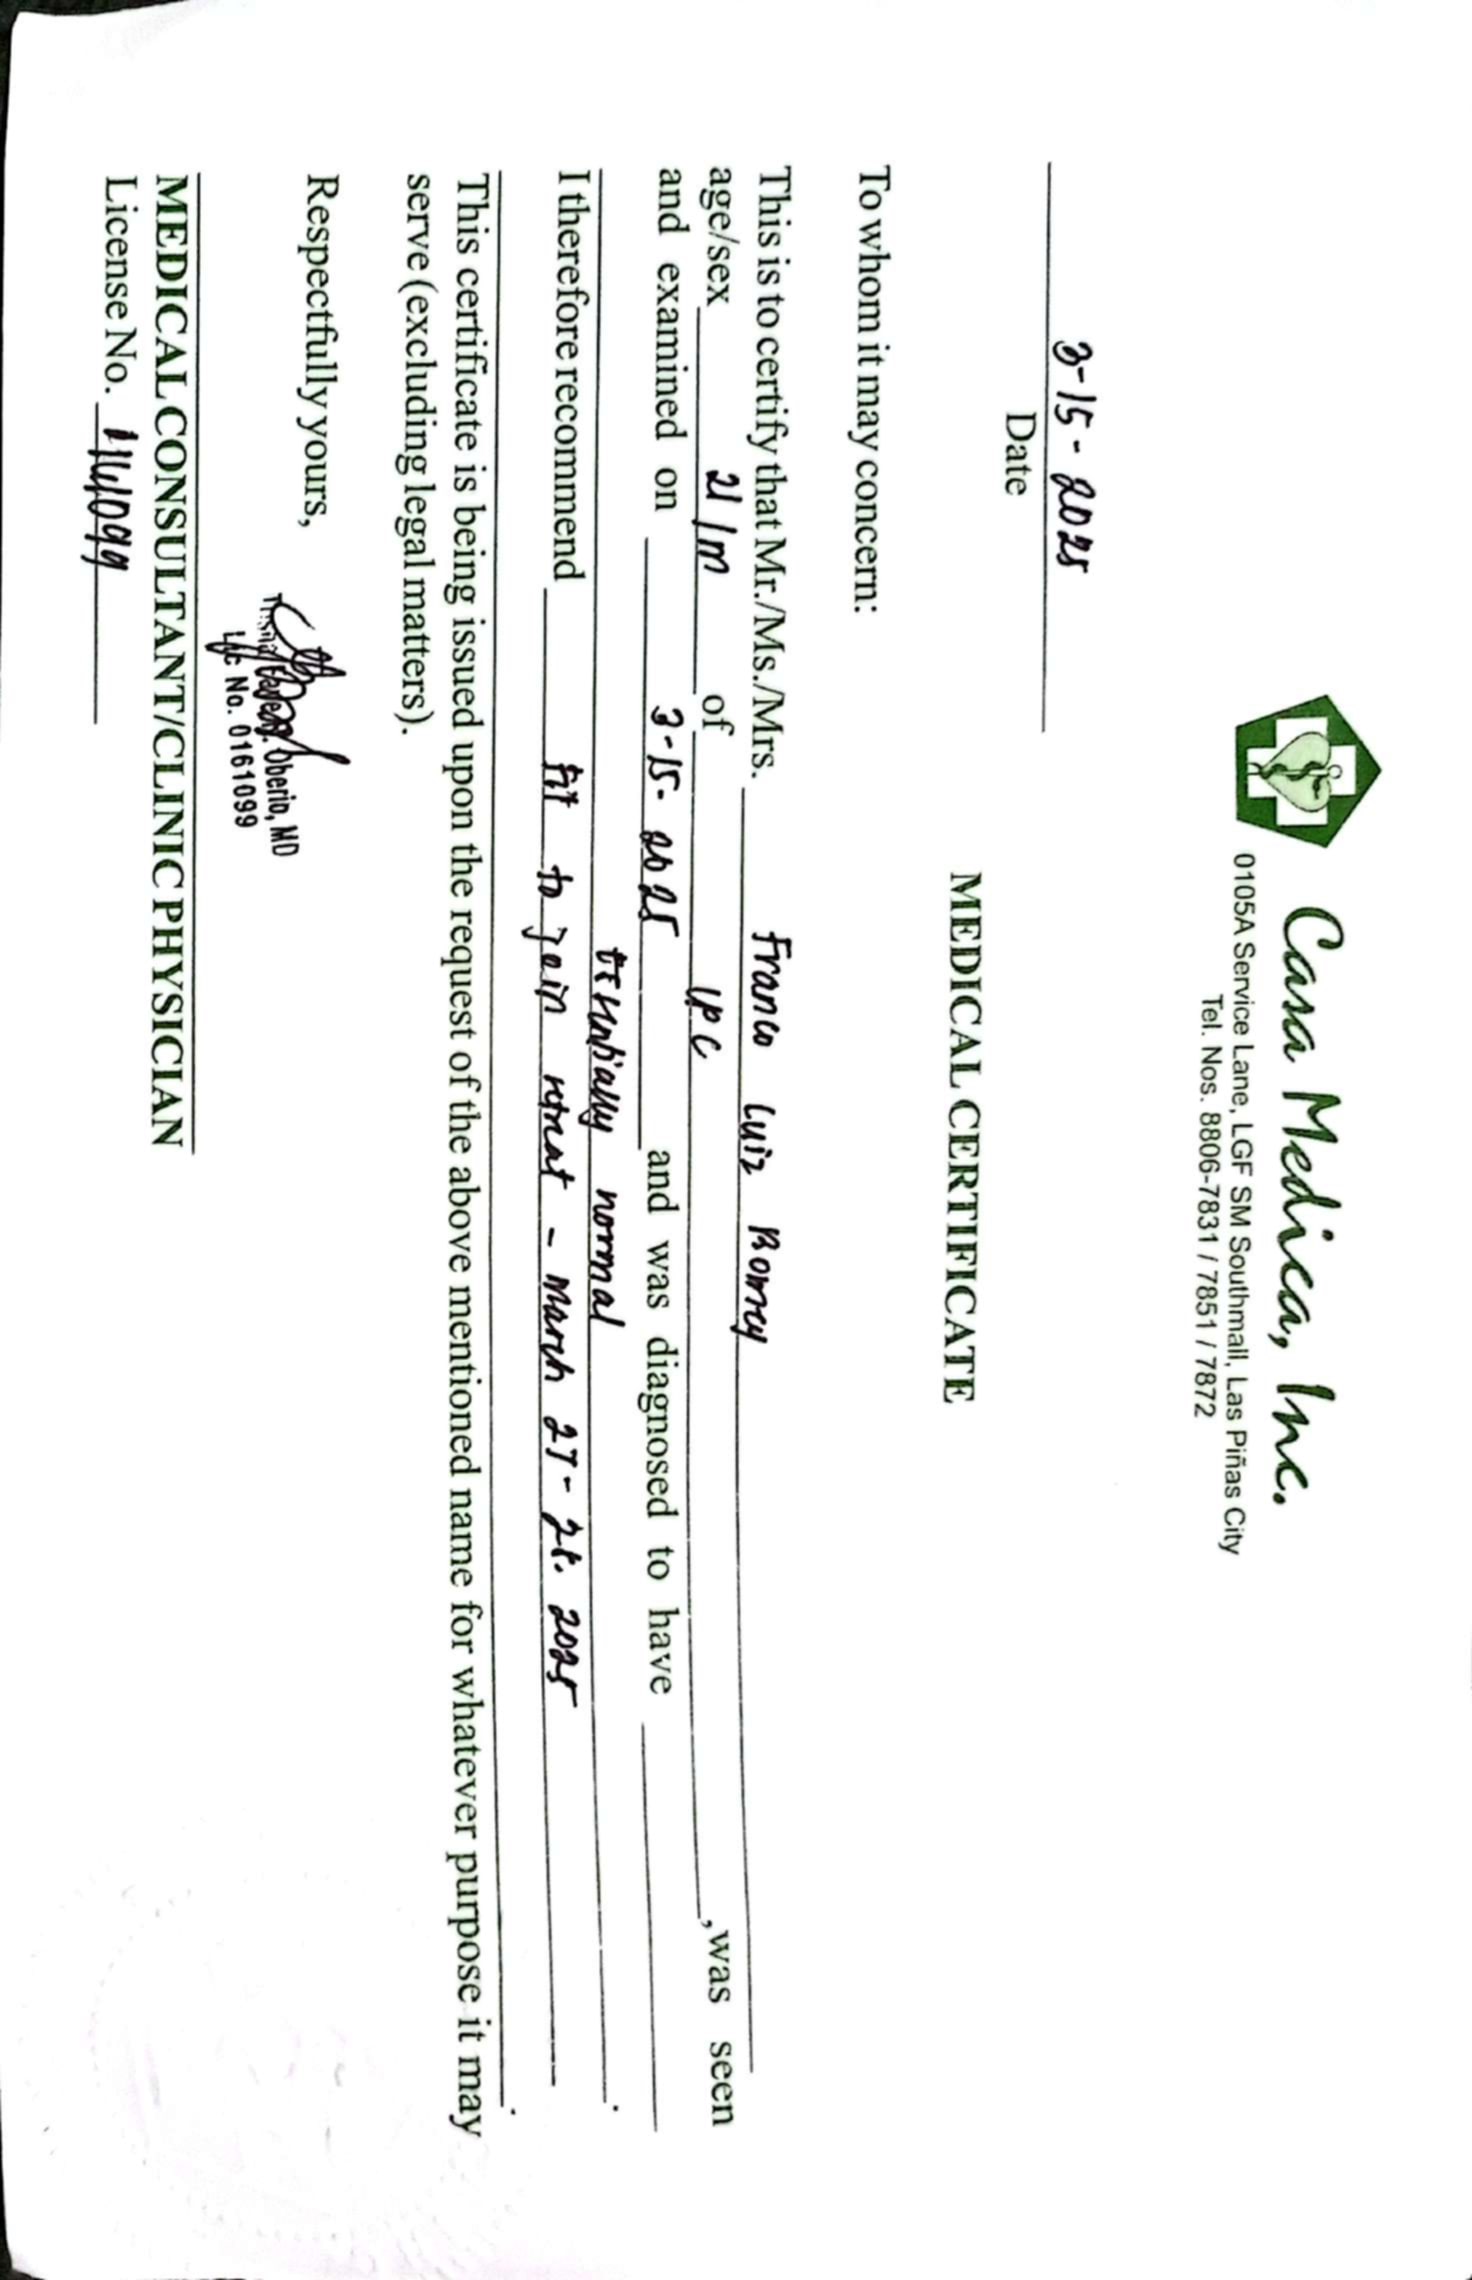 Casa Medica, Inc.
0105A Service Lane, LGF SM Southmall, Las Piñas City
Tel. Nos. 8806-7831 / 7851 / 7872
MEDICAL CERTIFICATE
3-15-2025
Date
To whom it may concern:
This is to certify that Mr./Ms./Mrs. Franco Luiz Borrey
age/sex 21/m of LPC, was seen
and examined on 3-15-2025 and was diagnosed to have
essentially normal.
I therefore recommend fit to join retreat - March 27-28. 2025
.
This certificate is being issued upon the request of the above mentioned name for whatever purpose it may
serve (excluding legal matters).
Respectfully yours,
Oberio, MD
Lic No. 0161099
MEDICAL CONSULTANT/CLINIC PHYSICIAN
License No. 161099